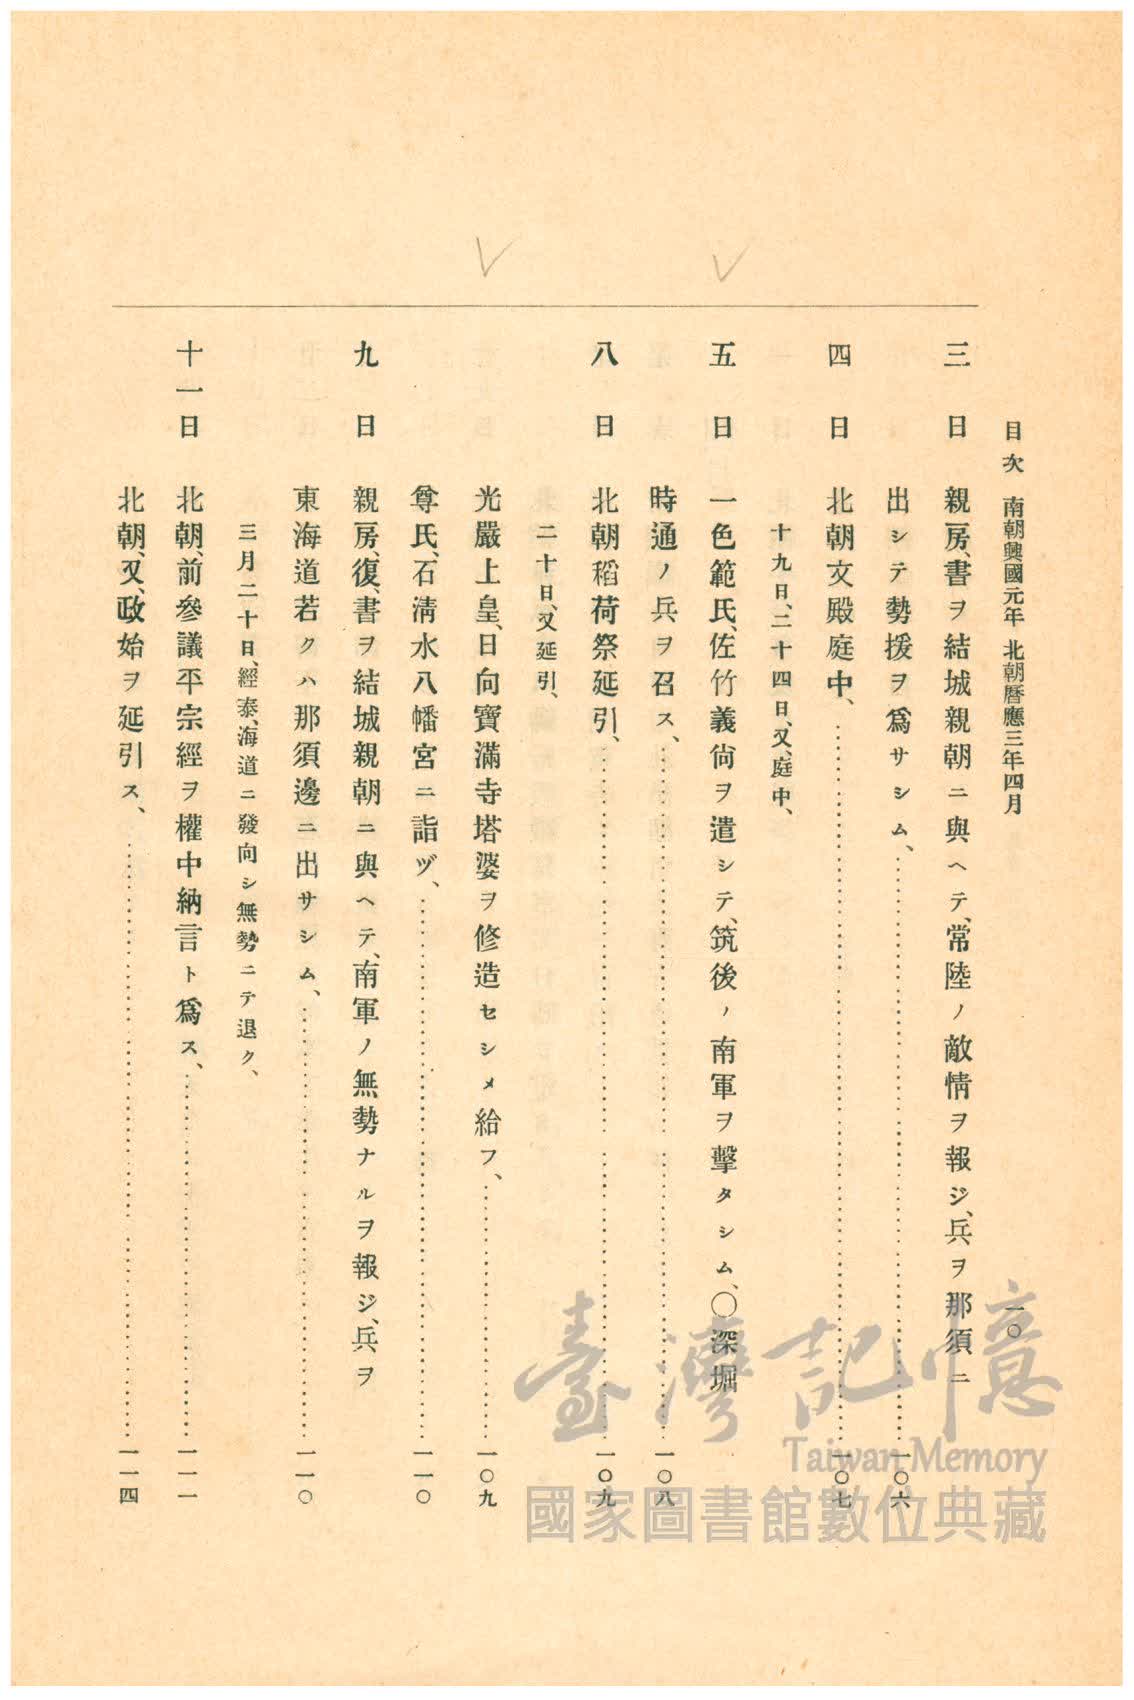 目次　南朝興國元年　北朝曆應三年四月　一〇
三日　親房、書ヲ結城親朝ニ與ヘテ、常陸ノ敵情ヲ報ジ、兵ヲ那須ニ
出シテ勢援ヲ爲サシム、…………一〇六
四日　北朝文殿庭中、…………一〇七
十九日、二十四日、又、庭中、
五日　一色範氏、佐竹義尙ヲ遣シテ、筑後ノ南軍ヲ擊タシム、〇深堀
時通ノ兵ヲ召ス、…………一〇八
八日　北朝稻荷祭延引、…………一〇九
二十日、又延引、
光嚴上皇、日向寶滿寺塔婆ヲ修造セシメ給フ、…………一〇九
尊氏、石淸水八幡宮ニ詣ヅ、…………一一〇
九日　親房、復、書ヲ結城親朝ニ與ヘテ、南軍ノ無勢ナルヲ報ジ、兵ヲ
東海道若クハ那須邊ニ出サシム、…………一一〇
三月二十日、經泰、海道ニ發向シ無勢ニテ退ク、
十一日　北朝、前參議平宗經ヲ權中納言ト爲ス、…………一一一
北朝、又、政始ヲ延引ス、…………一一四
臺灣記憶
Taiwan Memory
國家圖書館數位典藏